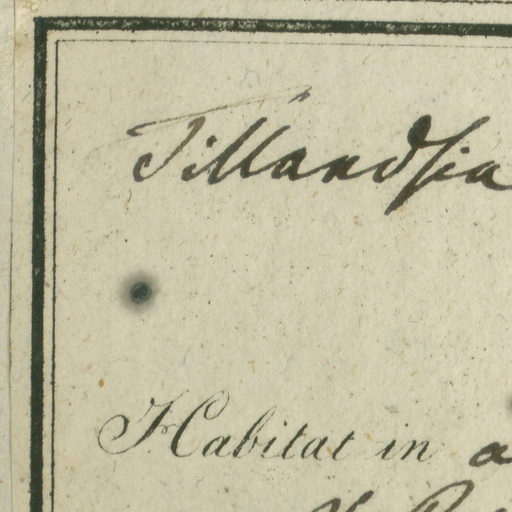 Tillandsia
Habitat in a